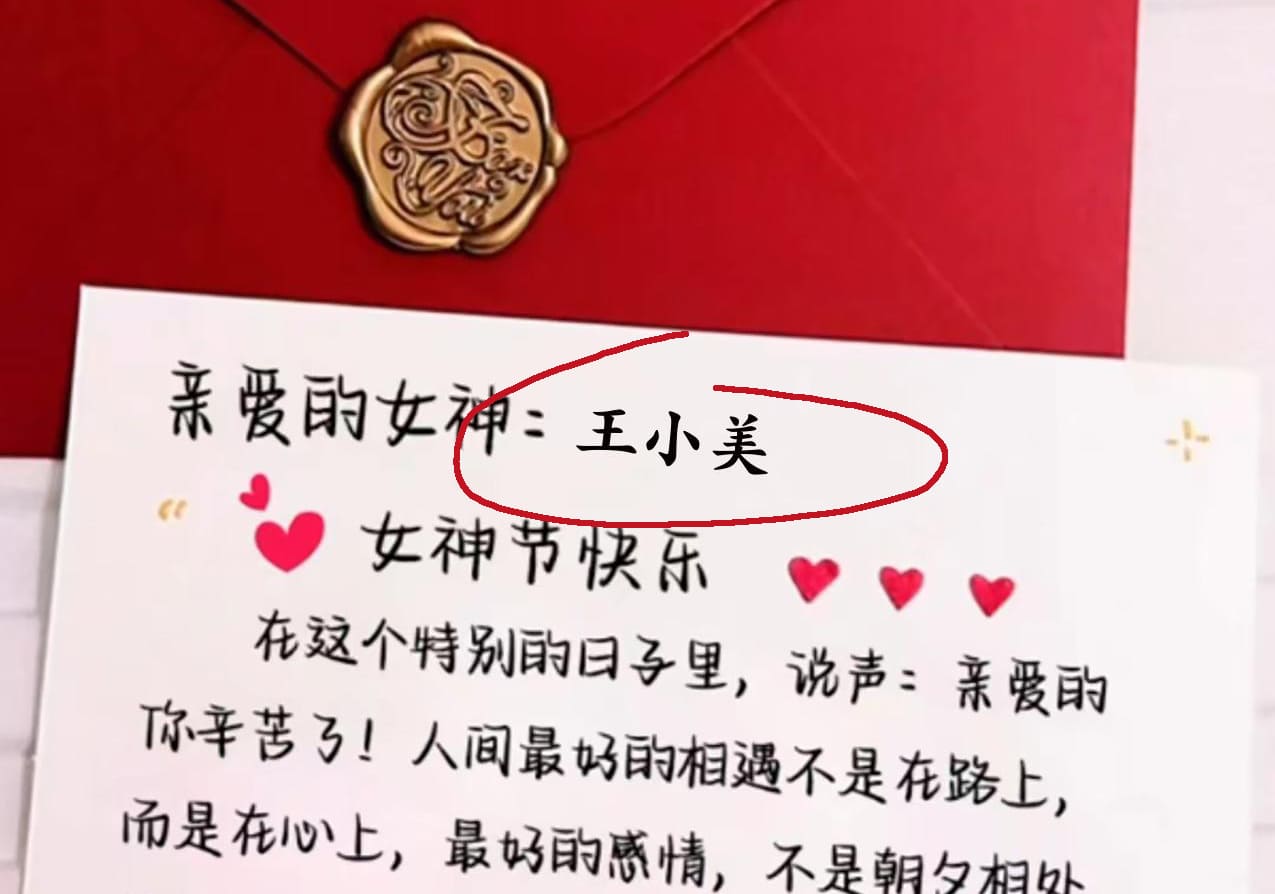 亲爱的女神：王小美
“
女神节快乐
在这个特别的日子里，说声：亲爱的
你辛苦了！人间最好的相遇不是在路上，
而是在心上，最好的感情，不是朝夕相处